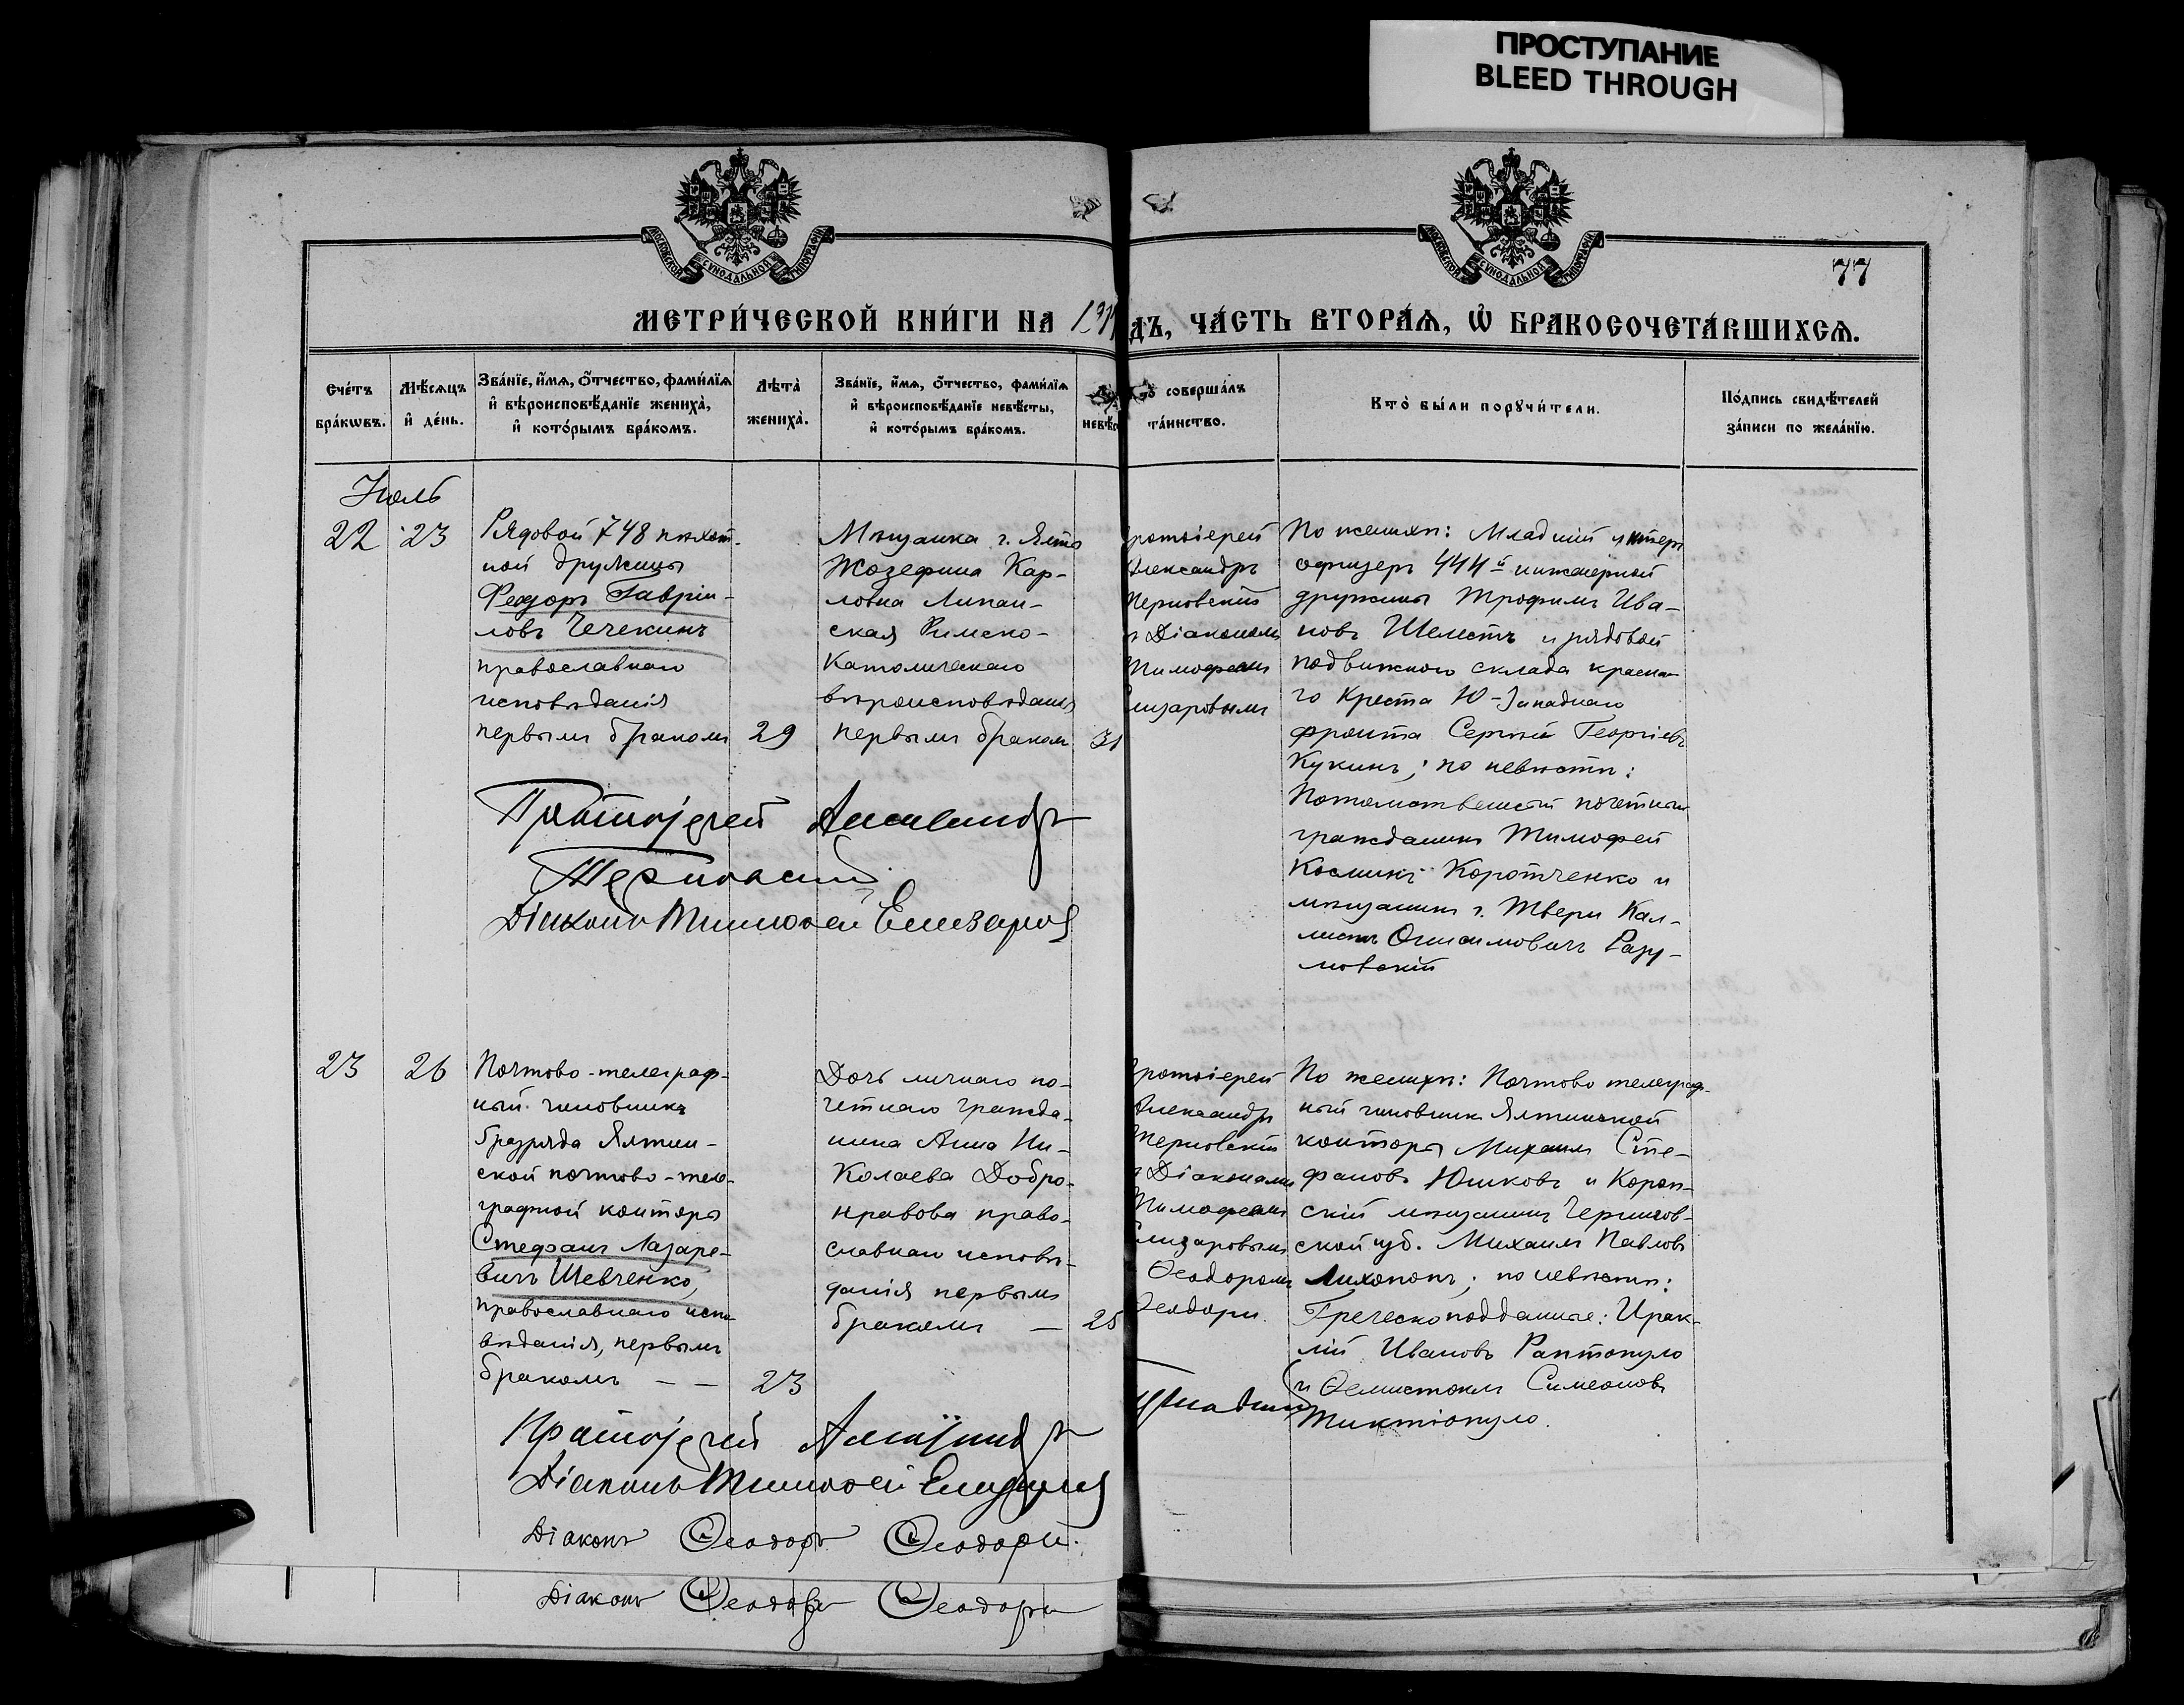 ПРОСТУПАНИЕ
BLEED THROUGH
МОСКОВСКОЙ СУНОДАЛЬНОЙ ТИПОГРАФІИ
МОСКОВСКОЙ СУНОДАЛЬНОЙ ТИПОГРАФІИ
77
МЕТРИ́ЧЕСКОЙ КНИ́ГИ НА
ДЪ, ЧА́СТЬ ВТОРА́Я, Ѡ БРАКОСОЧЕТА́ВШИХСѦ.
Сче́тъ
бра́кѡвъ.
Мѣ́сяцъ
и҆ де́нь.
Зва́нїе, и҆́мѧ, ѻ҆́тчество, фами́лїѧ
и҆ вѣроисповѣ́данїе жениха̀,
и҆ кото́рымъ бра́комъ.
Лѣта̀
жениха̀.
Зва́нїе, и҆́мѧ, ѻ҆́тчество, фами́лїѧ
и҆ вѣроисповѣ́данїе невѣ́сты,
и҆ кото́рымъ бра́комъ.
невѣс
то̀ соверша́лъ
та́инство.
Кто̀ бы́ли порꙋчи́тели.
По́дпись свидѣ́телей
за́писи по жела́нїю.
Июль
22
23
Рядовой 748 пѣхот-
ной дружины
Феодоръ Гаврии-
ловъ Чечекинъ
православнаго
исповѣданія
первымъ бракомъ
29
Мѣщанка г. Ялты
Жозефина Кар-
ловна Липин-
ская Римско-
Католическаго
вѣроисповѣданія
первымъ бракомъ
31
ротоіерей
Александръ
Терновскій
съ Діакономъ
Тимофеемъ
лизаровымъ
По женихѣ: Младшій унтеръ
офицеръ 444й инженерной
дружины Трофимъ Ива-
новъ Шелестъ и рядовой
подвижного склада красна-
го Креста Ю-Западнаго
фронта Сергѣй Георгіевъ
Кукинъ; по невѣстѣ:
Потомственный почетный
гражданинъ Тимофей
Косминъ Коротченко и
мѣщанинъ г. Твери Кал-
листъ Онисимовичъ Разу-
мовскій
Протоіерей Александръ
Терновскій
Діаконъ Тимофей Елизаровъ
23
26
Почтово-телеграф-
ный чиновникъ
6 разряда Ялтин-
ской почтово-теле-
графной конторы
Стефанъ Лазаре-
вичъ Шевченко,
православнаго испо
вѣданія, первымъ
бракомъ — —
23
Дочь личнаго по-
четнаго гражда-
нина Анна Ни-
колаева Добро-
нравова право-
славнаго исповѣ-
данія первымъ
бракомъ —
25
ротоіерей
Александръ
Терновскій
съ Діаконами
Тимофеемъ
лизаровымъ
Ѳеодоромъ
Ѳеодори.
По женихѣ: Почтово телеграф-
ный чиновникъ Ялтинской
конторы Михаилъ Сте-
фановъ Юшковъ и Короп-
скій мѣщанинъ Чернигов-
ской губ. Михаилъ Павловъ
Лихопопъ; по невѣстѣ:
Греческоподданные: Ирак-
лій Ивановъ Раптопуло
и Ѳемистоклъ Симеоновъ
Тиктіопуло.
Протоіерей Александръ
Діаконъ Тимофей Елизаровъ
Діаконъ Ѳеодоръ Ѳеодори.
Діаконъ Ѳеодоръ Ѳеодори